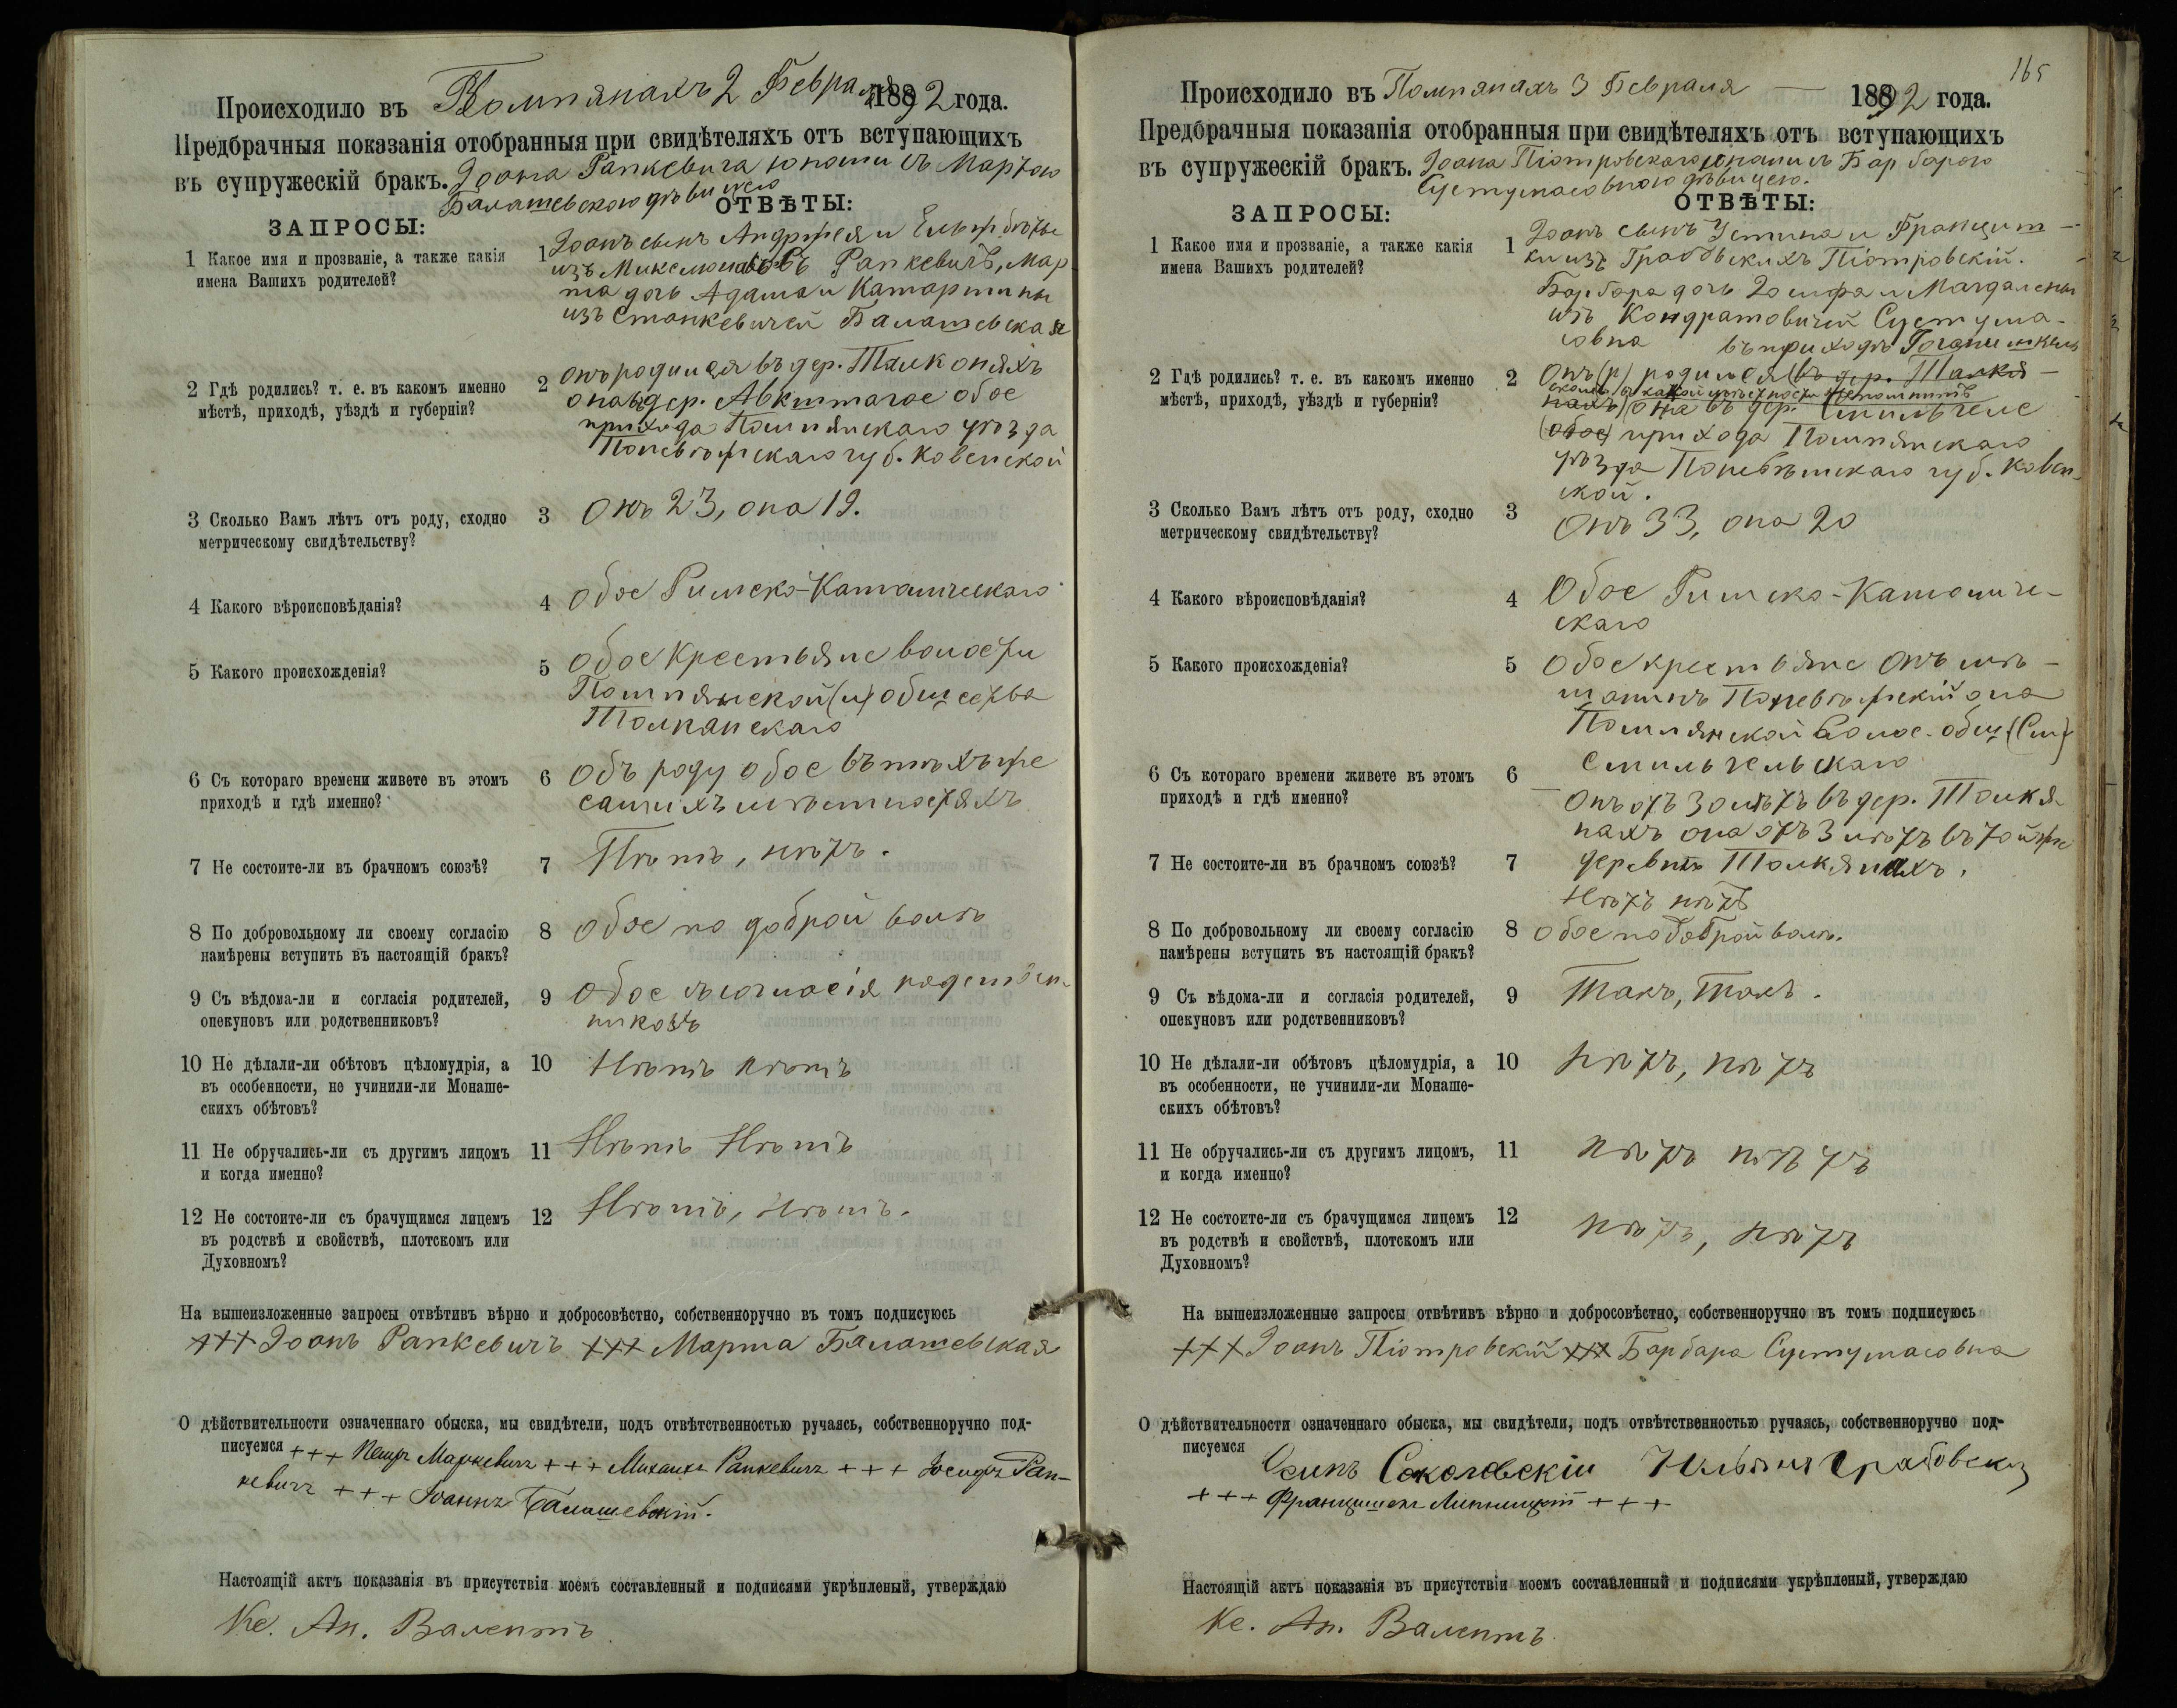 Происходило въ Помпянахъ 2 Февраля 1892 года.
Предбрачныя показанія отобранныя при свидѣтеляхъ отъ вступающихъ
въ супружескій бракъ. Іоана Ранкевича юноши съ Мартою
Балашевскою дѣвицею
ЗАПРОСЫ:
ОТВѢТЫ:
1 Какое имя и прозваніе, а также какія
имена Вашихъ родителей?
1 Іоанъ сынъ Андржея и Ельжбѣты
изъ Ранкевичъ, Мар
та дочь Адама и Катаржины
изъ Станкевичей Балашевская
2 Гдѣ родились? т. е. въ какомъ именно
мѣстѣ, приходѣ, уѣздѣ и губерніи?
2 онъ родился въ дер. Талконяхъ
она въ дер. обое
прихода Помпянскаго уѣзда
Поневѣжскаго губ. Ковенской
3 Сколько Вамъ лѣтъ отъ роду, сходно
метрическому свидѣтельству?
3 Онъ 23, она 19.
4 Какого вѣроисповѣданія?
4 Обое Римско-Католическаго
5 Какого происхожденія?
5 Обое крестьяне волости
Помпянской (и) общества
Толканскаго
6 Съ котораго времени живете въ этомъ
приходѣ и гдѣ именно?
6 Отъ роду обое въ тѣхъ же
самихъ мѣстностяхъ
7 Не состоите-ли въ брачномъ союзѣ?
7 Нѣтъ, нѣтъ.
8 По добровольному ли своему согласію
намѣрены вступить въ настоящій бракъ?
8 Обое по доброй волѣ
9 Съ вѣдома-ли и согласія родителей,
опекуновъ или родственниковъ?
9 Обое съ согласія родствен-
никовъ
10 Не дѣлали-ли обѣтовъ цѣломудрія, а
въ особенности, не учинили-ли Монаше-
скихъ обѣтовъ?
10 Нѣтъ нѣтъ
11 Не обручались-ли съ другимъ лицомъ
и когда именно?
11 Нѣтъ Нѣтъ
12 Не состоите-ли съ брачущимся лицемъ
въ родствѣ и свойствѣ, плотскомъ или
Духовномъ?
12 Нѣтъ, Нѣтъ.
На вышеизложенные запросы отвѣтивъ вѣрно и добросовѣстно, собственноручно въ томъ подписуюсь
+++ Іоанъ Ранкевичъ +++ Марта Балашевская
О дѣйствительности означеннаго обыска, мы свидѣтели, подъ отвѣтственностью ручаясь, собственноручно под-
писуемся +++ Петръ Маркевичъ +++ Михаилъ Ранкевичъ +++ Іосифъ Ран-
кевичъ +++ Іоаннъ Балашевскій.
Настоящій актъ показанія въ присутствіи моемъ составленный и подписями укрѣпленый, утверждаю
Кс. Ан. Валентъ
165
Происходило въ Помпянахъ 3 Февраля — 1892 года.
Предбрачныя показанія отобранныя при свидѣтеляхъ отъ вступающихъ
въ супружескій бракъ. Іоана Піотровскаго юноши съ Барбарою
Сустумасовною дѣвицею.
ЗАПРОСЫ:
ОТВѢТЫ:
1 Какое имя и прозваніе, а также какія
имена Вашихъ родителей?
1 Іоанъ сынъ Устина и Францит-
ки изъ Грабовскихъ Піотровскій.
Барбара дочь Іосифа и Магдалены
изъ Кондратовичей Сустума-
совна
въ приходѣ
2 Гдѣ родились? т. е. въ какомъ именно
мѣстѣ, приходѣ, уѣздѣ и губерніи?
2 Онъ (р) родился въ дер. Талкя-
нахъ) она въ дер. Смильгеле
(обое) прихода Помпянскаго
уѣзда Поневѣжскаго губ. Ковен-
ской.
3 Сколько Вамъ лѣтъ отъ роду, сходно
метрическому свидѣтельству?
3 Онъ 33, она 20
4 Какого вѣроисповѣданія?
4 Обое Римско-Католиче-
скаго
5 Какого происхожденія?
5 Обое крестьяне Онъ мѣ-
щанинъ Поневѣжскій она
Помпянской Волос. общ (См)
Смильгельскаго
6 Съ котораго времени живете въ этомъ
приходѣ и гдѣ именно?
6 Онъ отъ 3 лѣтъ въ дер. Толкя-
нахъ она отъ 3 лѣтъ въ той же
деревнѣ Толкянахъ.
7 Не состоите-ли въ брачномъ союзѣ?
7 Нѣтъ нѣтъ
8 По добровольному ли своему согласію
намѣрены вступить въ настоящій бракъ?
8 Обое по доброй волѣ.
9 Съ вѣдома-ли и согласія родителей,
опекуновъ или родственниковъ?
9 Такъ, Такъ.
10 Не дѣлали-ли обѣтовъ цѣломудрія, а
въ особенности, не учинили-ли Монаше-
скихъ обѣтовъ?
10 Нѣтъ, нѣтъ
11 Не обручались-ли съ другимъ лицомъ,
и когда именно?
11 Нѣтъ нѣтъ
12 Не состоите-ли съ брачущимся лицемъ
въ родствѣ и свойствѣ, плотскомъ или
Духовномъ?
12 Нѣтъ, нѣтъ
На вышеизложенные запросы отвѣтивъ вѣрно и добросовѣстно, собственноручно въ томъ подписуюсь
+++ Іоанъ Піотровскій +++ Барбара Сустумасовна
О дѣйствительности означеннаго обыска, мы свидѣтели, подъ отвѣтственностью ручаясь, собственноручно под-
писуемся Осипъ Соколовскій
+++ Францишекъ +++
Настоящій актъ показанія въ присутствіи моемъ составленный и подписями укрѣпленый, утверждаю
Кс. Ан. Валентъ